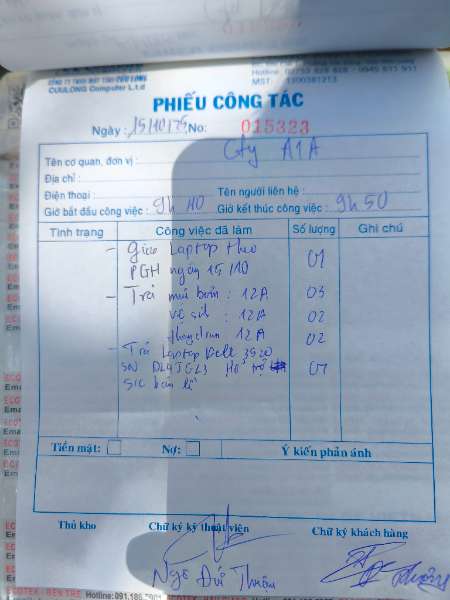 CÔNG TY TNHH MÁY TÍNH CỬU LONG
CUULONG Computer L.t.d
MST: 1300381213
PHIẾU CÔNG TÁC
Ngày: 15/10/25 No: 015323
Tên cơ quan, đơn vị: Cty A1A
Địa chỉ:
Điện thoại: Tên người liên hệ:
Giờ bắt đầu công việc: 9h 40 Giờ kết thúc công việc: 9h 50
Tình trạng Công việc đã làm Số lượng Ghi chú
- Giao Laptop theo 01
PGH ngày 15/10
- Trả mực bơm: 12A 03
vệ sinh: 12A 02
thay drum 12A 02
- Trả Laptop Dell 3520 01
SN Hổ trợ
Tiền mặt: Nợ: Ý kiến phản ánh
Thủ kho Chữ ký kỹ thuật viên Chữ ký khách hàng
Ngô Đức Thuận
ECOTEK - BẾN TRE Hotline: